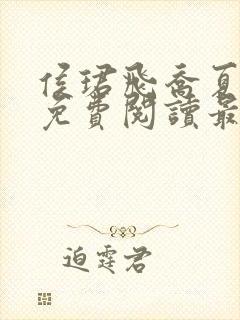 侯珺飛喬夏
免費閱讀最
迫霆君